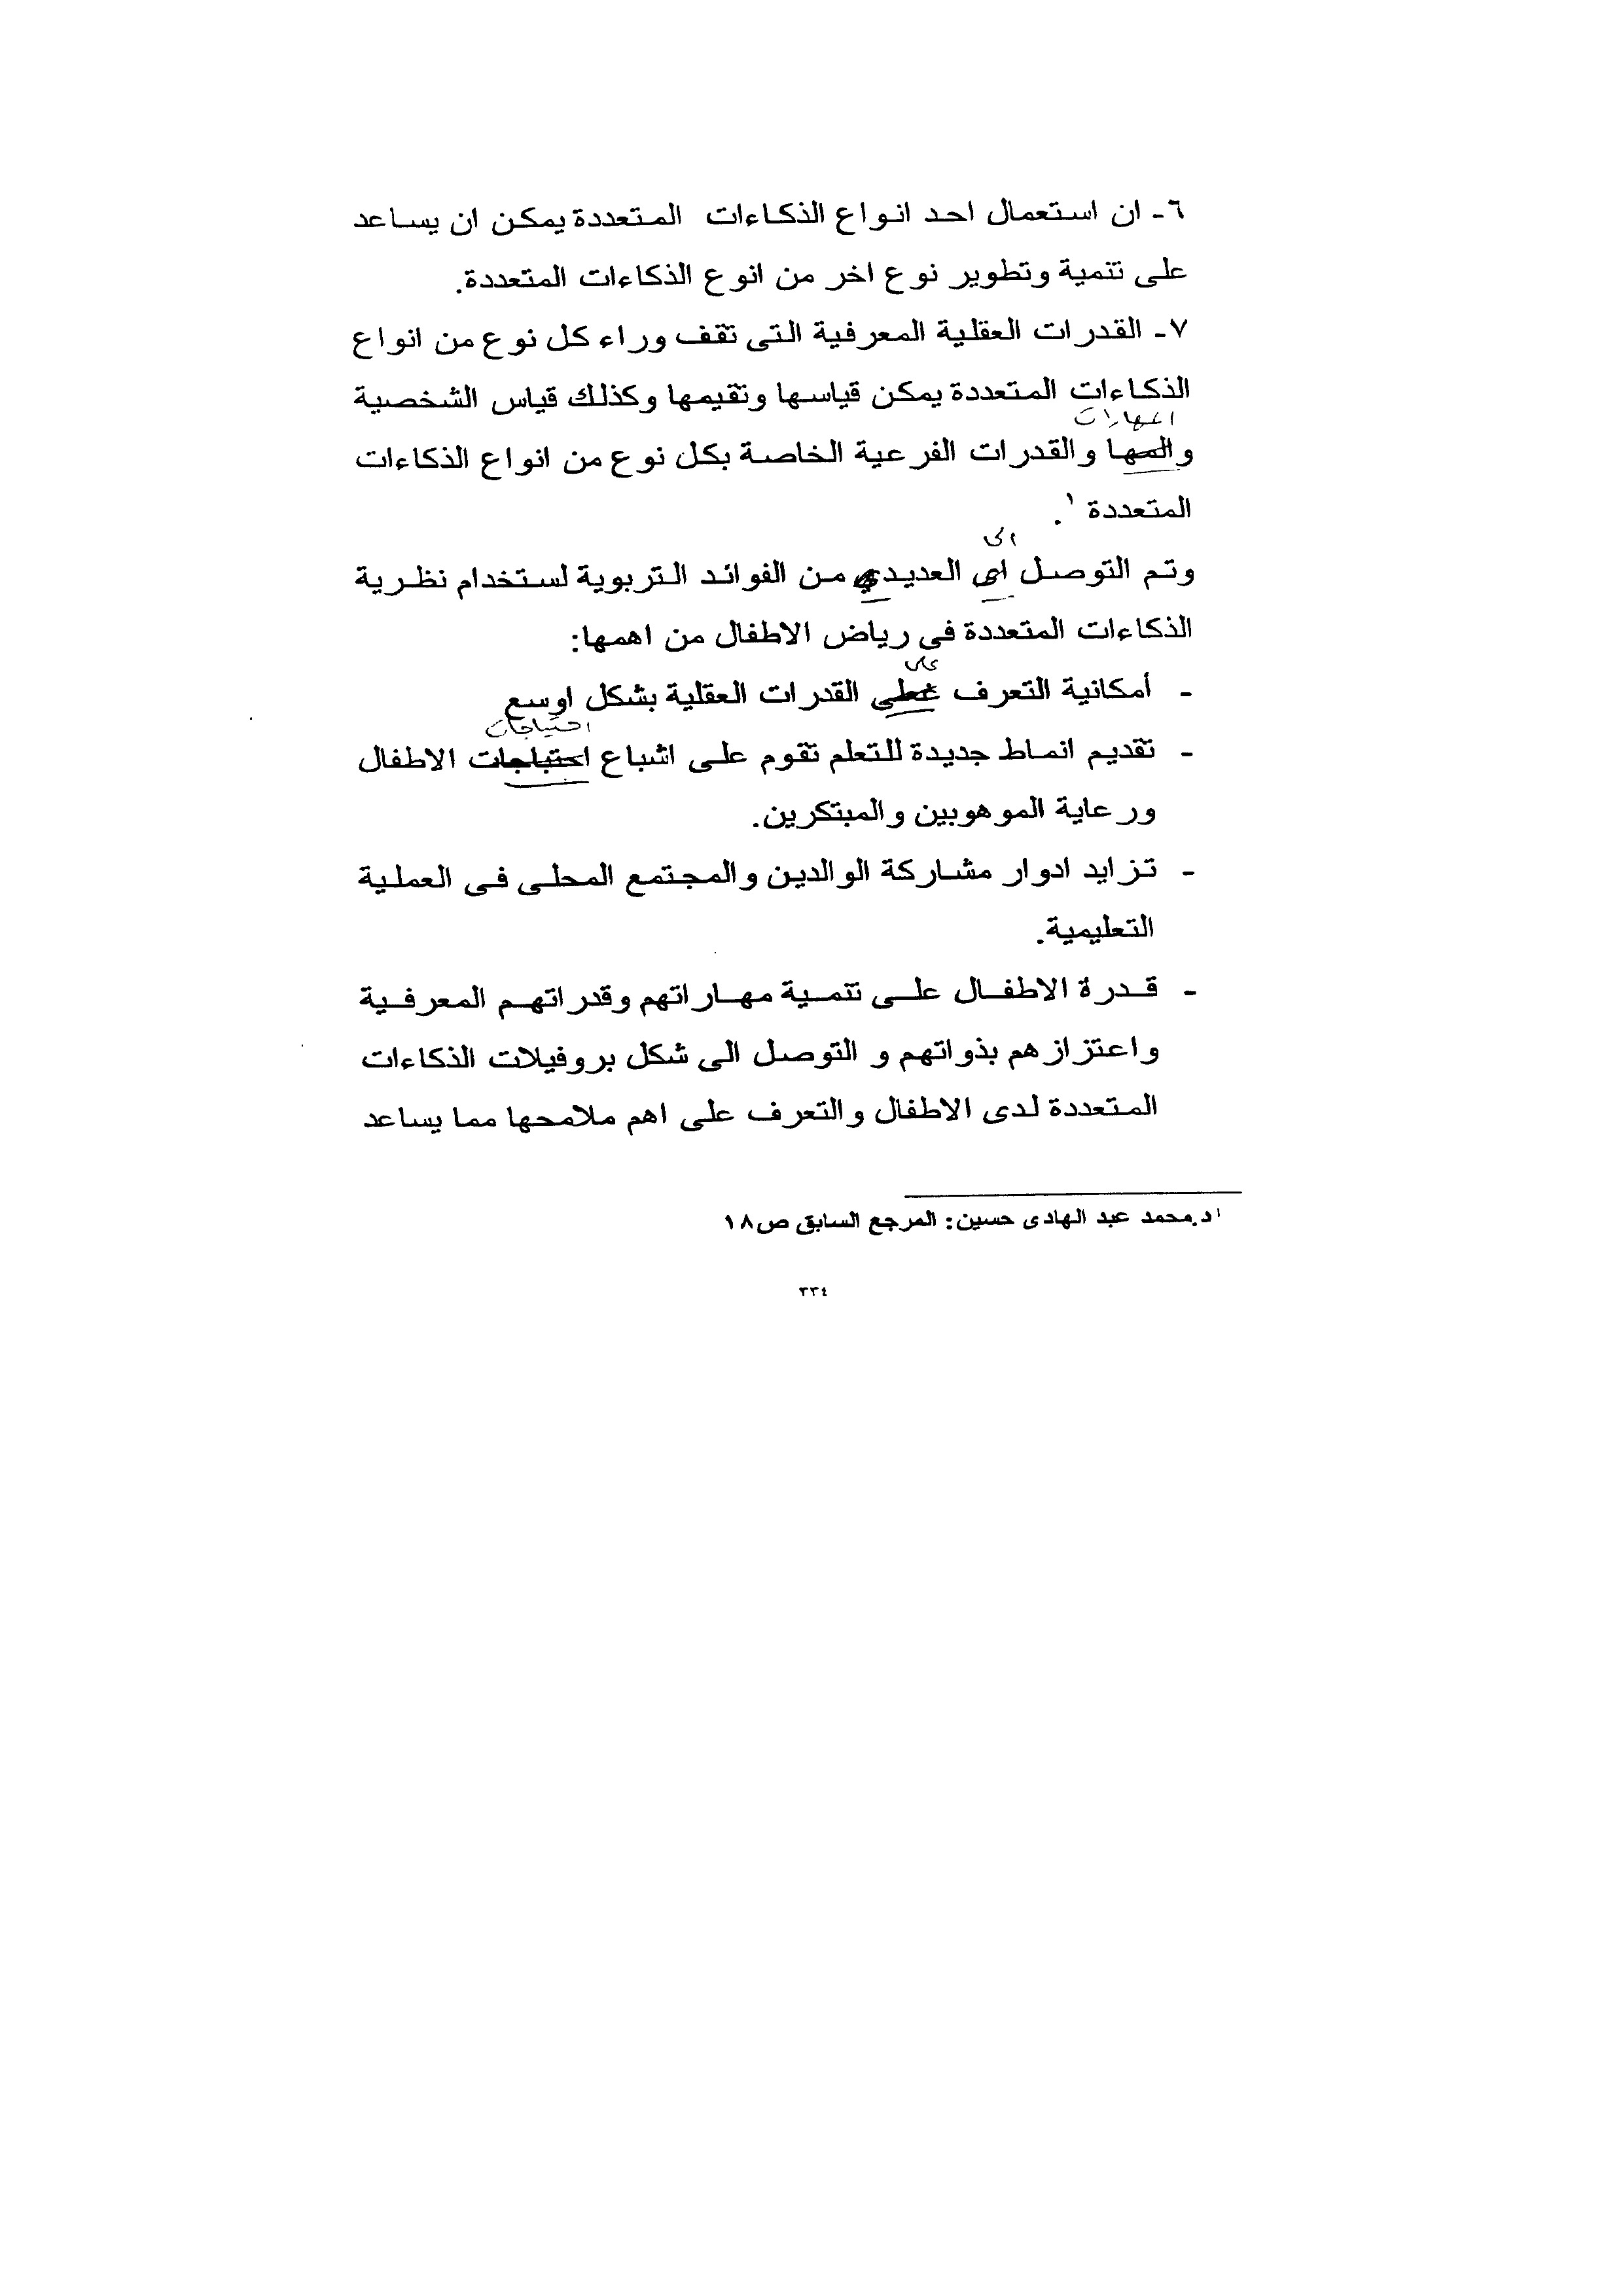 ٦- ان استعمال احد انواع الذكاءات المتعددة يمكن ان يساعد
على تنمية وتطوير نوع اخر من انوع الذكاءات المتعددة.
٧- القدرات العقلية المعرفية التى تقف وراء كل نوع من انواع
الذكاءات المتعددة يمكن قياسها وتقيمها وكذلك قياس الشخصية
المهارات
والمها والقدرات الفرعية الخاصة بكل نوع من انواع الذكاءات
المتعددة ١.
الى
وتم التوصل اى العديدي من الفوائد التربوية لستخدام نظرية
الذكاءات المتعددة فى رياض الاطفال من اهمها:
على
- أمكانية التعرف غطى القدرات العقلية بشكل اوسع
احتياجات
- تقديم انماط جديدة للتعلم تقوم على اشباع احتباجات الاطفال
ورعاية الموهوبين والمبتكرين.
- تزايد ادوار مشاركة الوالدين والمجتمع المحلى فى العملية
التعليمية.
- قدرة الاطفال على تنمية مهاراتهم وقدراتهم المعرفية
واعتزازهم بذواتهم و التوصل الى شكل بروفيلات الذكاءات
المتعددة لدى الاطفال والتعرف على اهم ملامحها مما يساعد
١ د.محمد عبد الهادى حسين: المرجع السابق ص١٨
٢٣٤